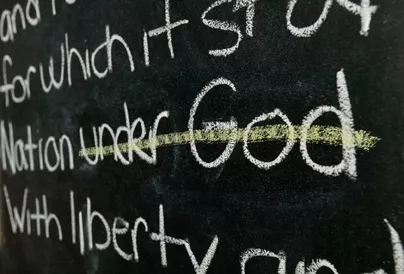 for which it st
Nation under God
with liberty and